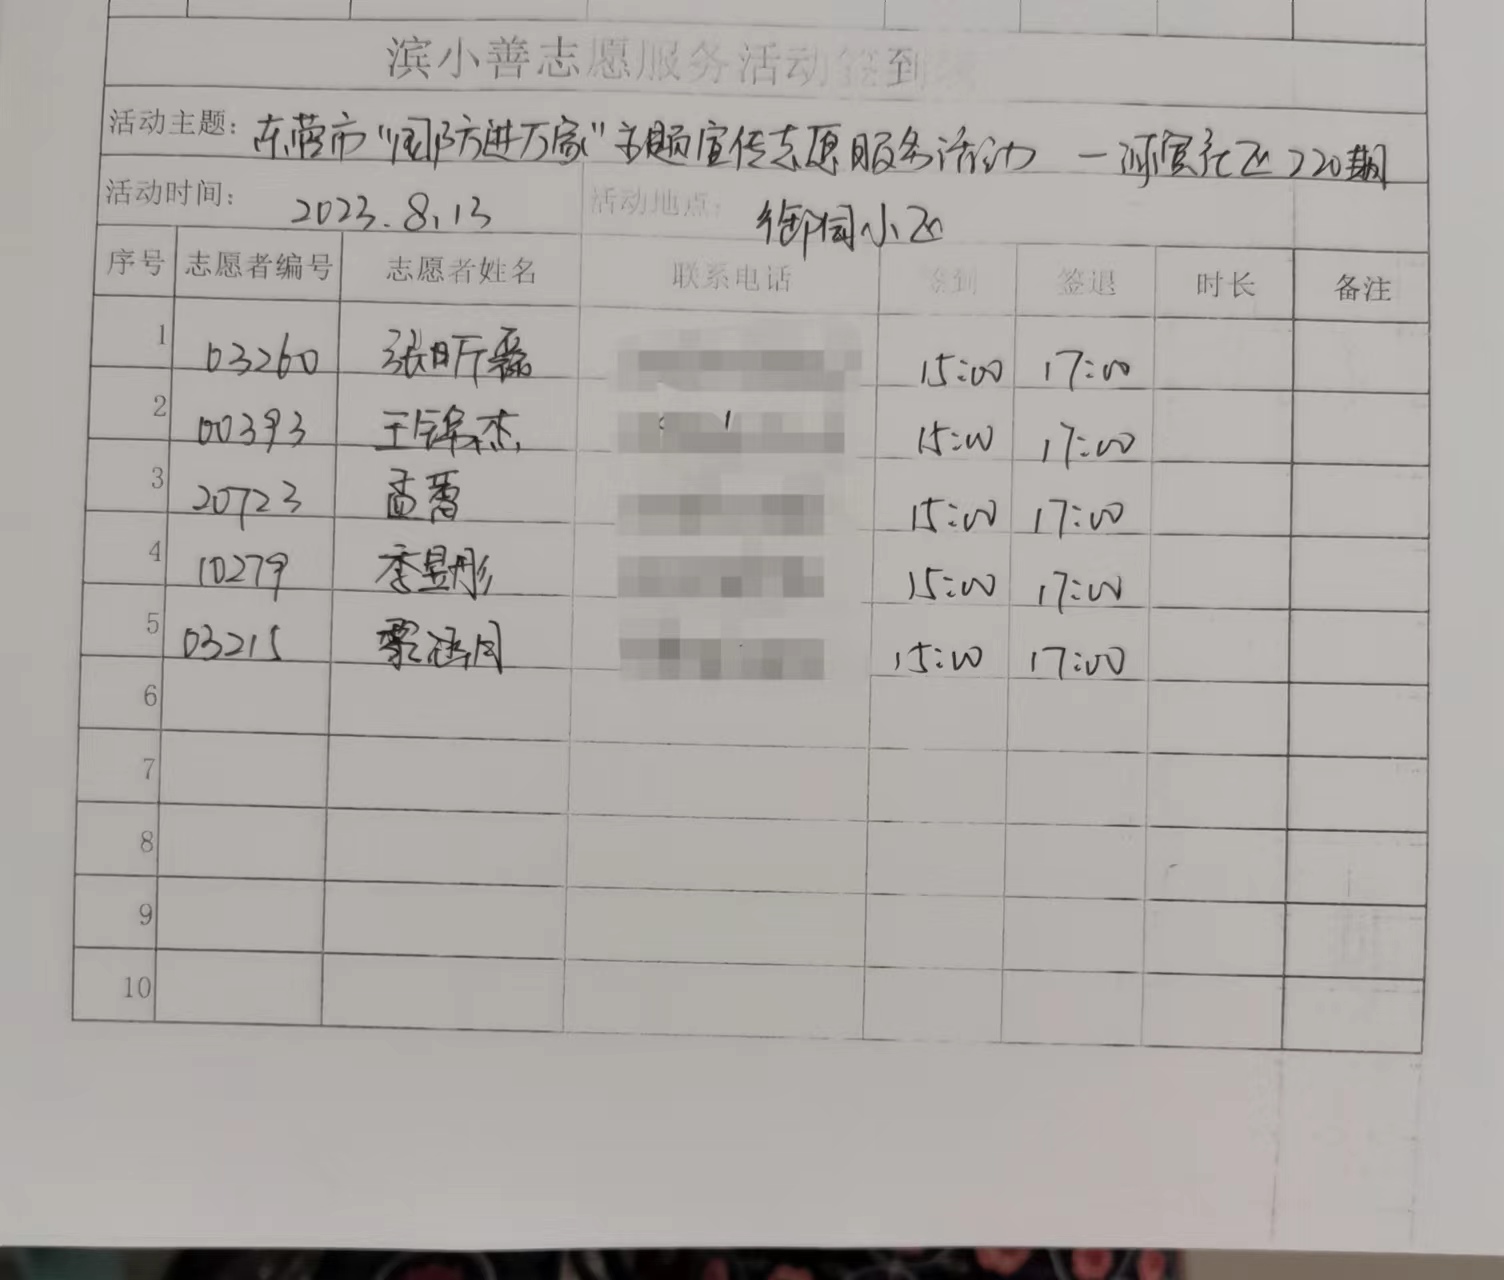 滨小善志愿服务活动签到
活动主题: 东营市"国防进万家"主题宣传志愿服务活动 — 社区220期
活动时间: 2023.8.13 活动地点: 御园小区
序号 志愿者编号 志愿者姓名 联系电话 签到 签退 时长 备注
1 03260 张昕磊 15:00 17:00
2 00393 王锦杰 15:00 17:00
3 20723 孟蕾 15:00 17:00
4 10279 李昱彤 15:00 17:00
5 03215 涵月 15:00 17:00
6
7
8
9
10